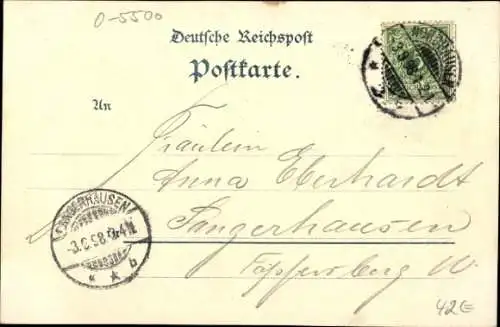 0-5500
Deutsche Reichspost
Postkarte.
An
Fräulein
Anna Eberhardt
Sangerhausen
Töpfersberg
SANGERHAUSEN
42€